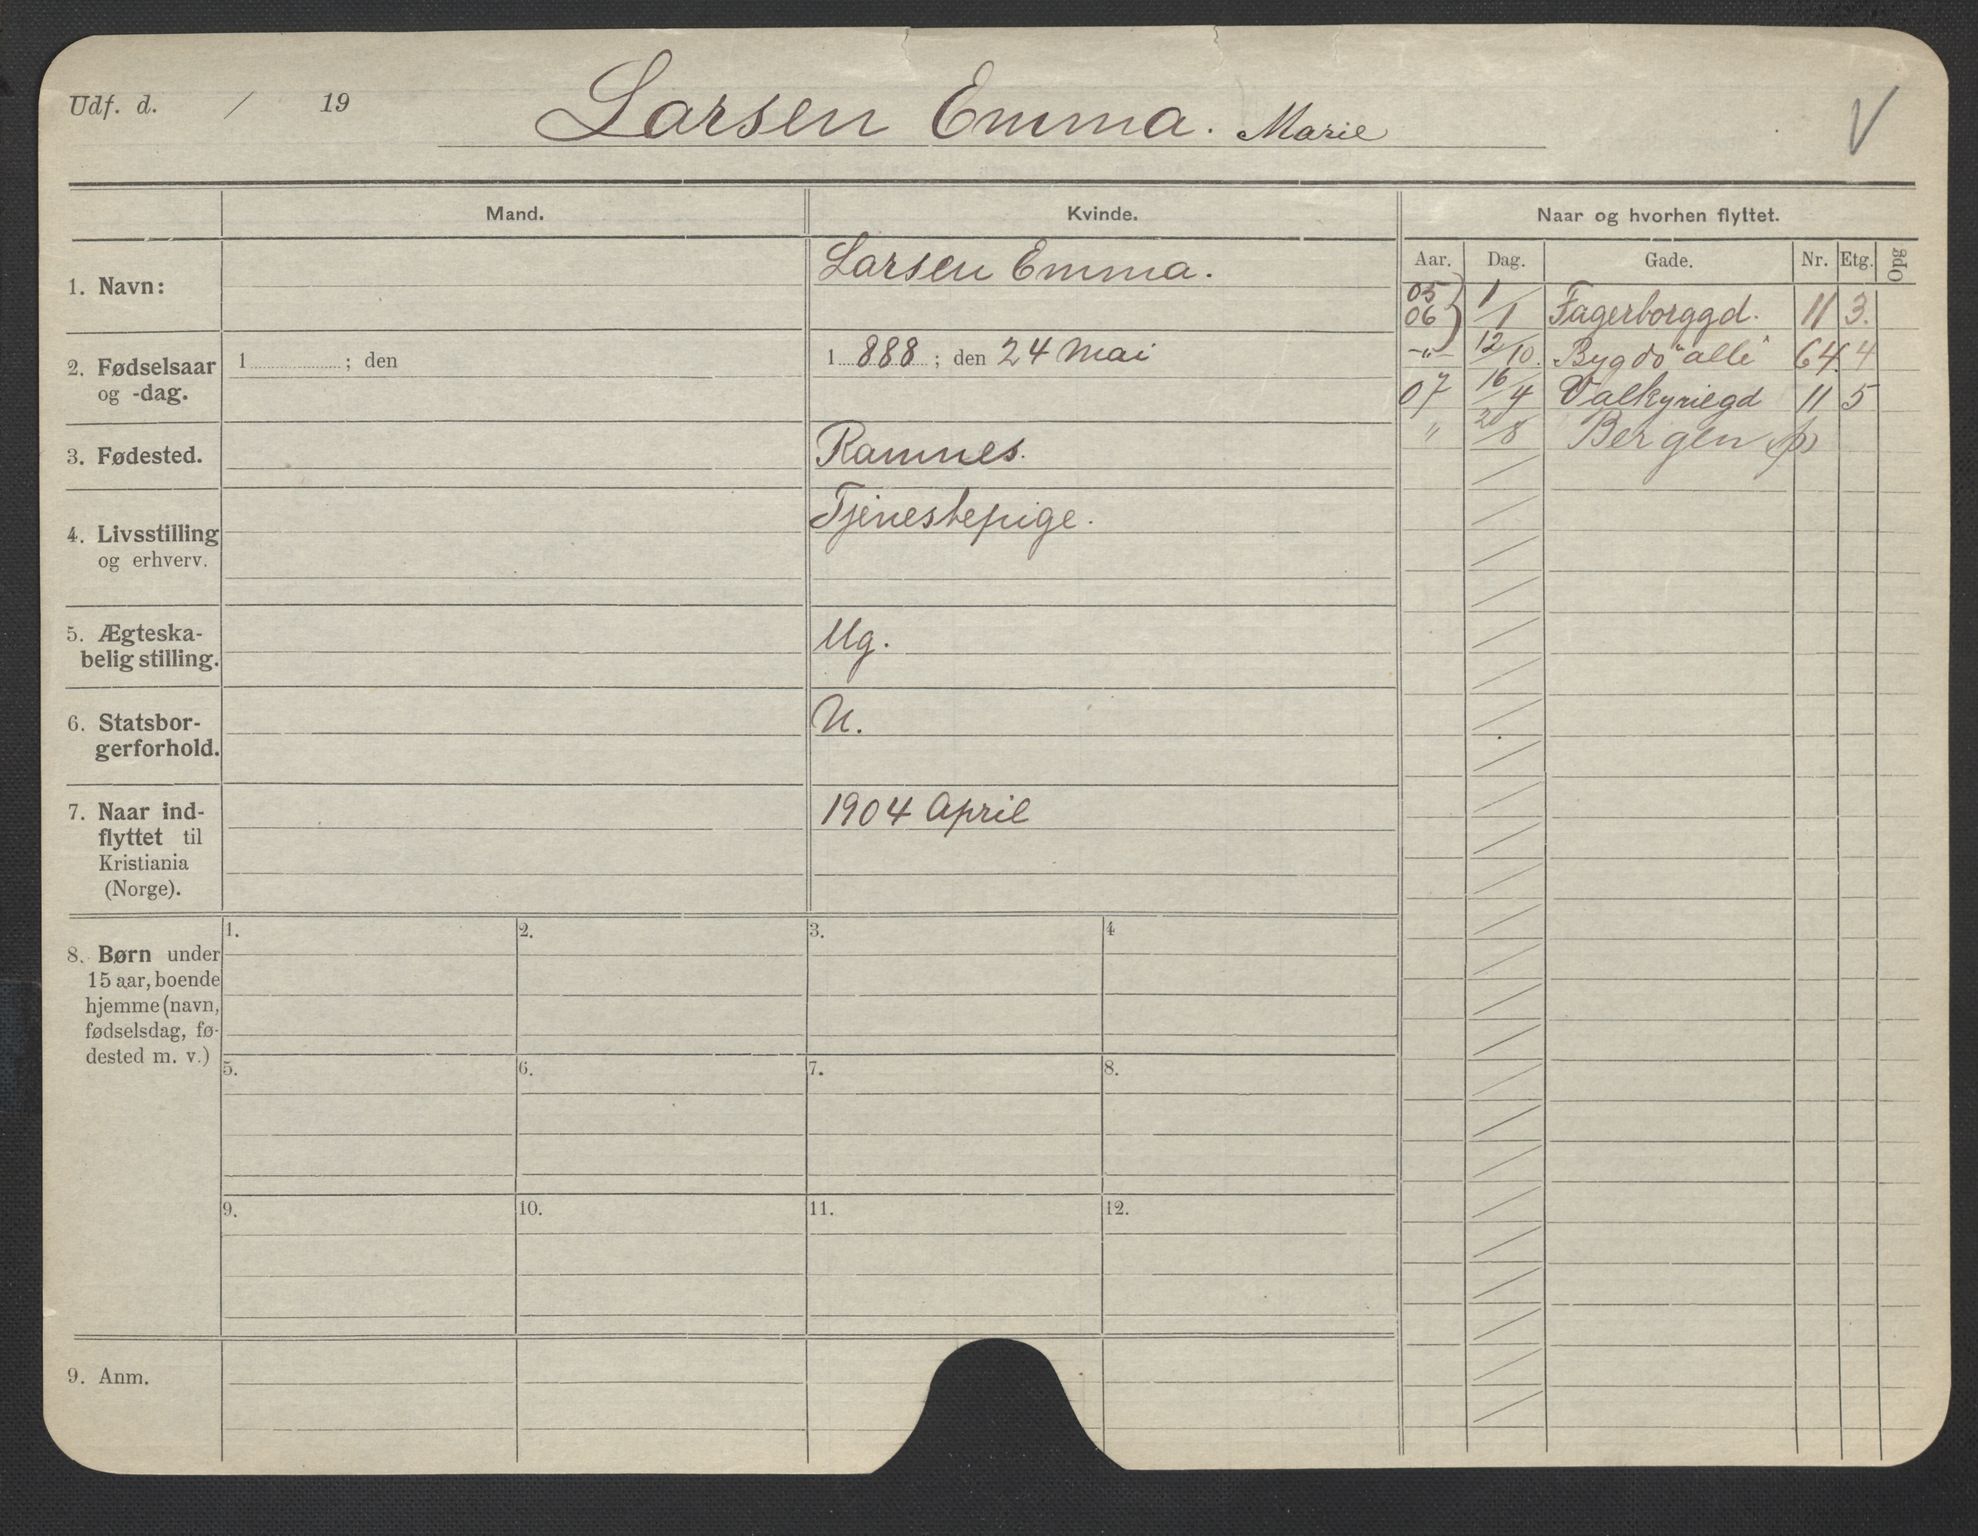 Udf. d. / 19
Larsen Emma. Marie
V
Mand.
Kvinde.
Naar og hvorhen flyttet.
Aar. Dag. Gade. Nr. Etg. Opg
1. Navn:
Larsen Emma.
2. Fødselsaar
og -dag.
1 ; den
1 888 ; den 24 Mai
3. Fødested.
Ramnes.
4. Livsstilling
og erhverv.
Tjenestepige.
5. Ægteska-
belig stilling.
Ug.
6. Statsbor-
gerforhold.
N.
7. Naar ind-
flyttet til
Kristiania
(Norge).
1904 April
8. Børn under
15 aar, boende
hjemme (navn,
fødselsdag, fø-
dested m. v.)
1. 2. 3. 4
5. 6. 7. 8.
9. 10. 11. 12.
9. Anm.
05
06 } 1/1 Fagerborggd. 11 3.
-"- 12/10. Bygdö alle 64. 4
07 16/4 Valkyriegd 11 5
" 20/8 Bergen